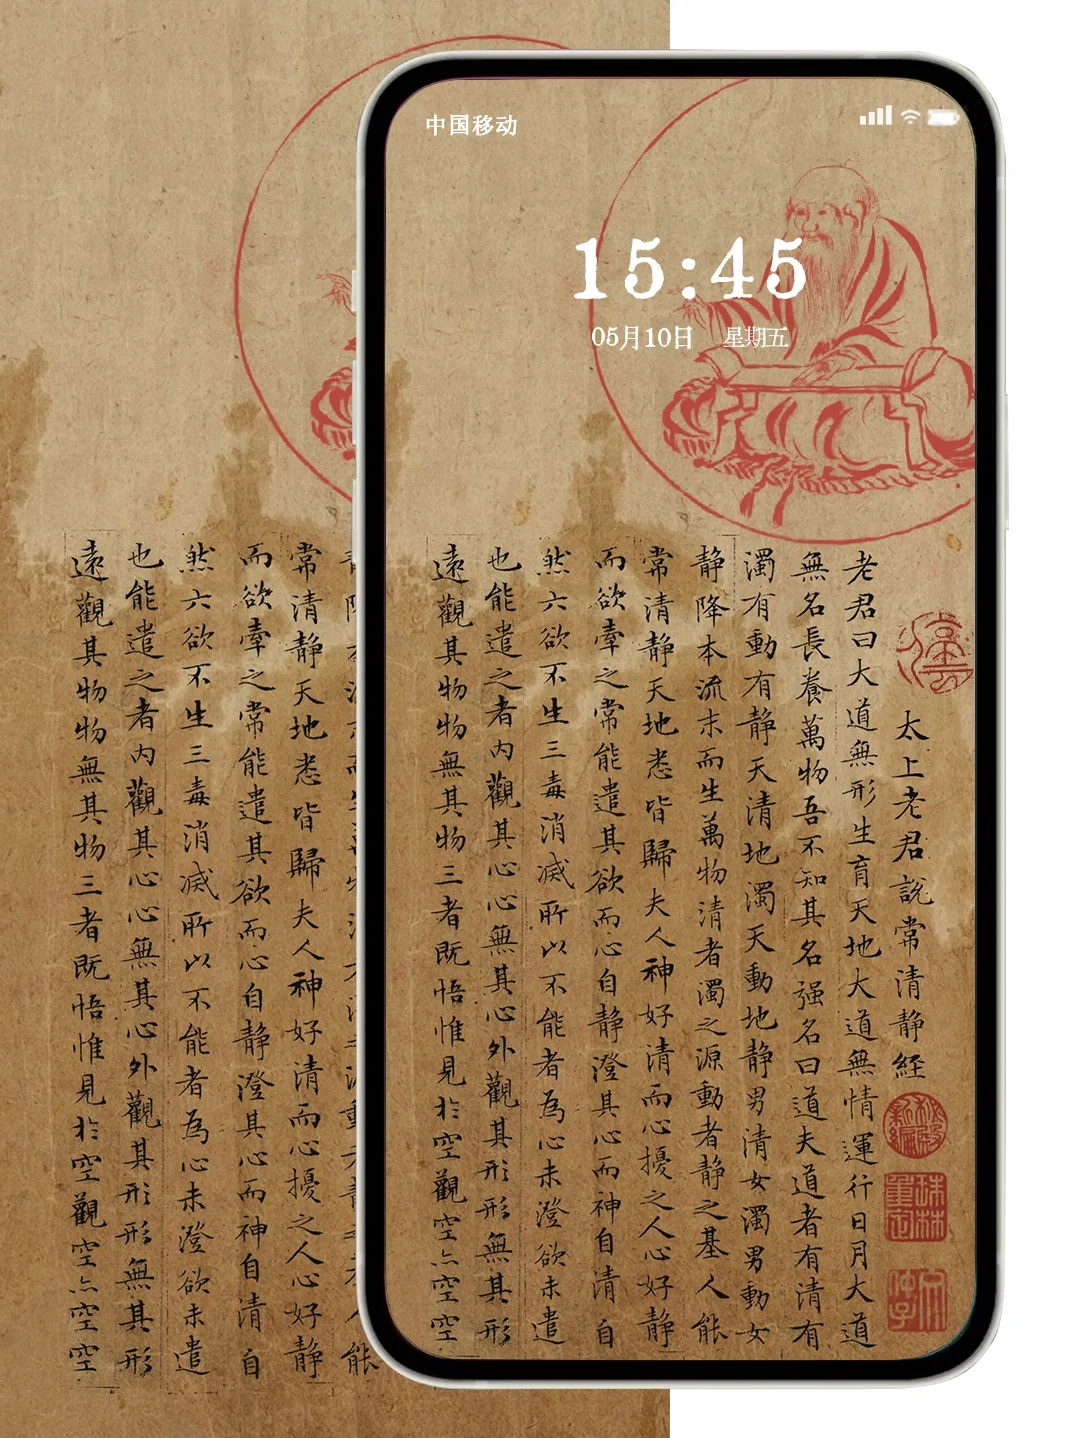 中国移动
15:45
05月10日 星期五
太上老君說常清静経
老君曰大道無形生育天地大道無情運行日月大道
無名長養萬物吾不知其名强名曰道夫道者有清有
濁有動有静天清地濁天動地静男清女濁男動女
静降本流末而生萬物清者濁之源動者静之基人能
常清静天地悉皆歸夫人神好清而心擾之人心好静
而欲牽之常能遣其欲而心自静澄其心而神自清自
然六欲不生三毒消滅所以不能者為心未澄欲未遣
也能遣之者内觀其心心無其心外觀其形形無其形
遠觀其物物無其物三者既悟惟見於空觀空亦空空
常清静天地悉皆歸夫人神好清而心擾之人心好静
而欲牽之常能遣其欲而心自静澄其心而神自清自
然六欲不生三毒消滅所以不能者為心未澄欲未遣
也能遣之者内觀其心心無其心外觀其形形無其形
遠觀其物物無其物三者既悟惟見於空觀空亦空空